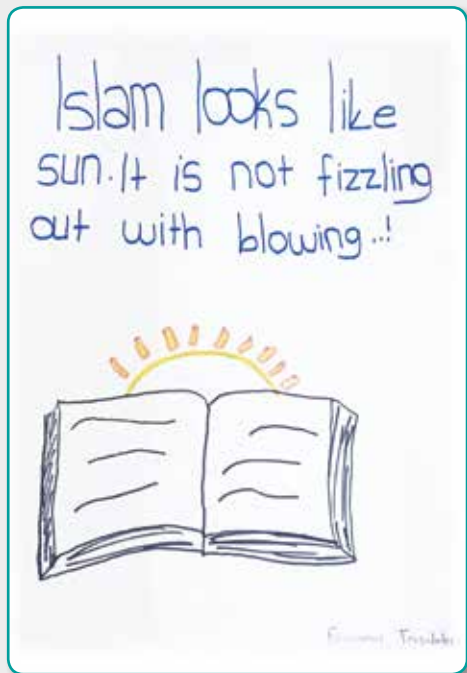 Islam looks like
sun. It is not fizzling
out with blowing...!